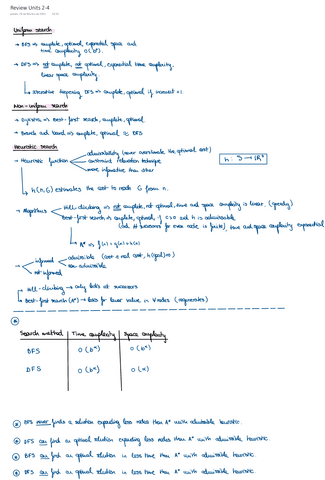 Review Units 2-4
Uniform search
→ BFS ⇒ complete, optimal, exponential space and
time complexity O(bᵈ).
→ DFS ⇒ not complete, not optimal, exponential time complexity,
linear space complexity.
↳ iterative deepening DFS ⇒ complete, optimal if
Non-uniform search
→ Dijkstra ⇒ Best-first search, complete, optimal.
→ Branch and bound ⇒ complete, optimal ≅ DFS
Heuristic search
→ Heuristic function
admissibility (never overestimate the optimal cost)
constraint relaxation technique
more informative than other
h: S → ℝ⁺
↳ h(n,G) estimates the cost to node G from n.
→ Algorithms
Hill-climbing ⇒ not complete, not optimal, time and space complexity is linear. (greedy)
Best-first search ⇒ complete, optimal, if c>0 and h is admissible
(and # successors for every node is finite), time and space complexity exponential
↳ A* ⇒ f(n) = g(n) + h(n)
→ informed
admissible (cost ≤ real cost, h(goal)=0)
non-admissible
not informed
Hill-climbing → only looks at successors
Best-first search (A*) → looks for lower value in ∀ nodes
Search method Time complexity Space complexity
BFS O(bᵈ) O(bᵈ)
DFS O(bᵈ) O(d)
BFS never finds a solution expanding less nodes than A* with admissible heuristic.
DFS can find an optimal solution expanding less nodes than A* with admissible heuristic.
BFS can find an optimal solution in less time than A* with admissible heuristic.
DFS can find an optimal solution in less time than A* with admissible heuristic.